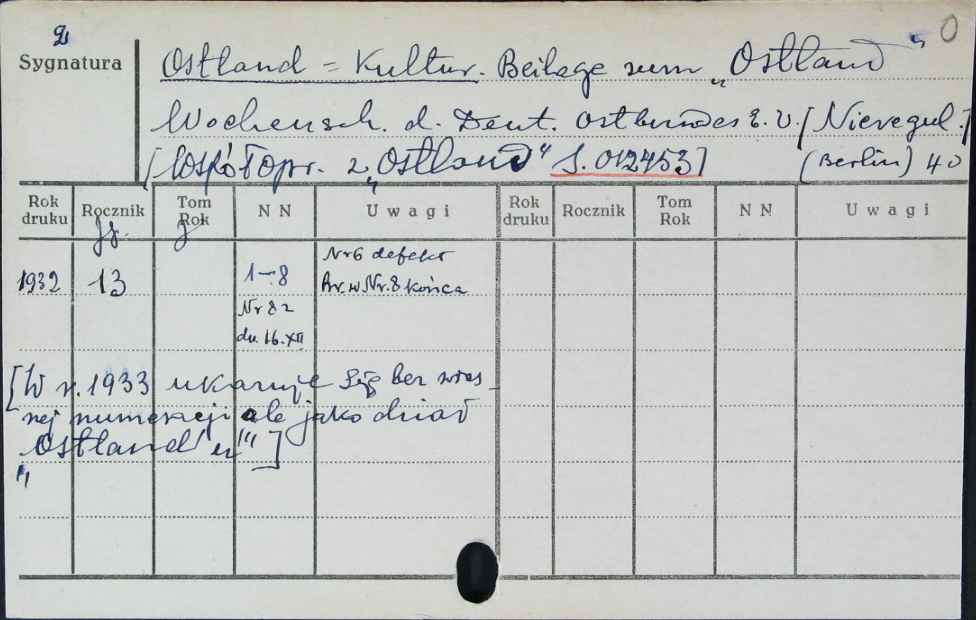 2
0
Sygnatura
Ostland = Kultur. Beilage zum „Ostland“
Wochensch. d. Deut. Ostbundes E. V. [Nieregul.]
[Współopr. z „Ostland“ S. 012453] (Berlin) 40
Rok druku Rocznik Tom Rok NN Uwagi Rok druku Rocznik Tom Rok NN Uwagi
Jg. J
1932 13 1-8 Nr 6 defekt
Br. w Nr. 8 końca
Nr 8 z
dn. 16.XII
[W r. 1933 ukazuje się bez włas-
nej numeracji ale jako dział
„Ostland'u“]